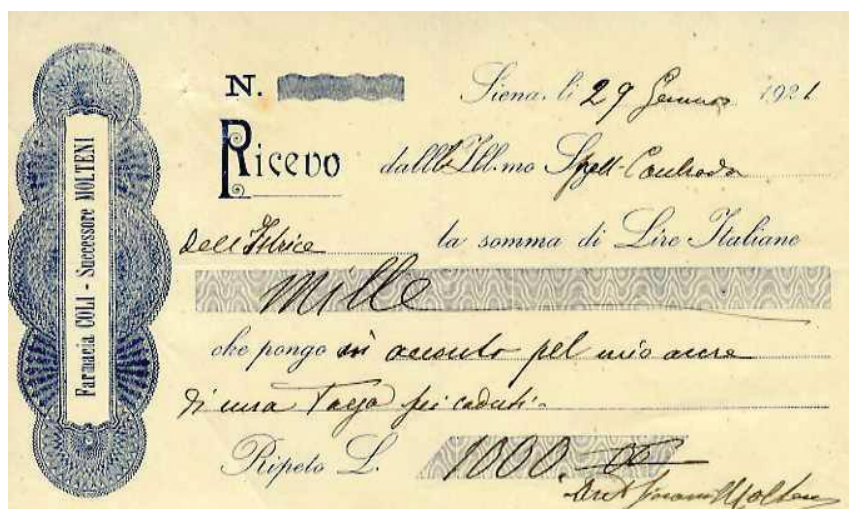 Farmacia COLI - Successore MOLTENI
N.
Siena, li 29 Gennaio 1921
Ricevo dall Ill.mo Spett. Contrada
dell'Istrice la somma di Lire Italiane
Mille
che pongo in acconto pel mio avere
di una Targa pei caduti.
Ripeto L. 1000.=00
Molteni